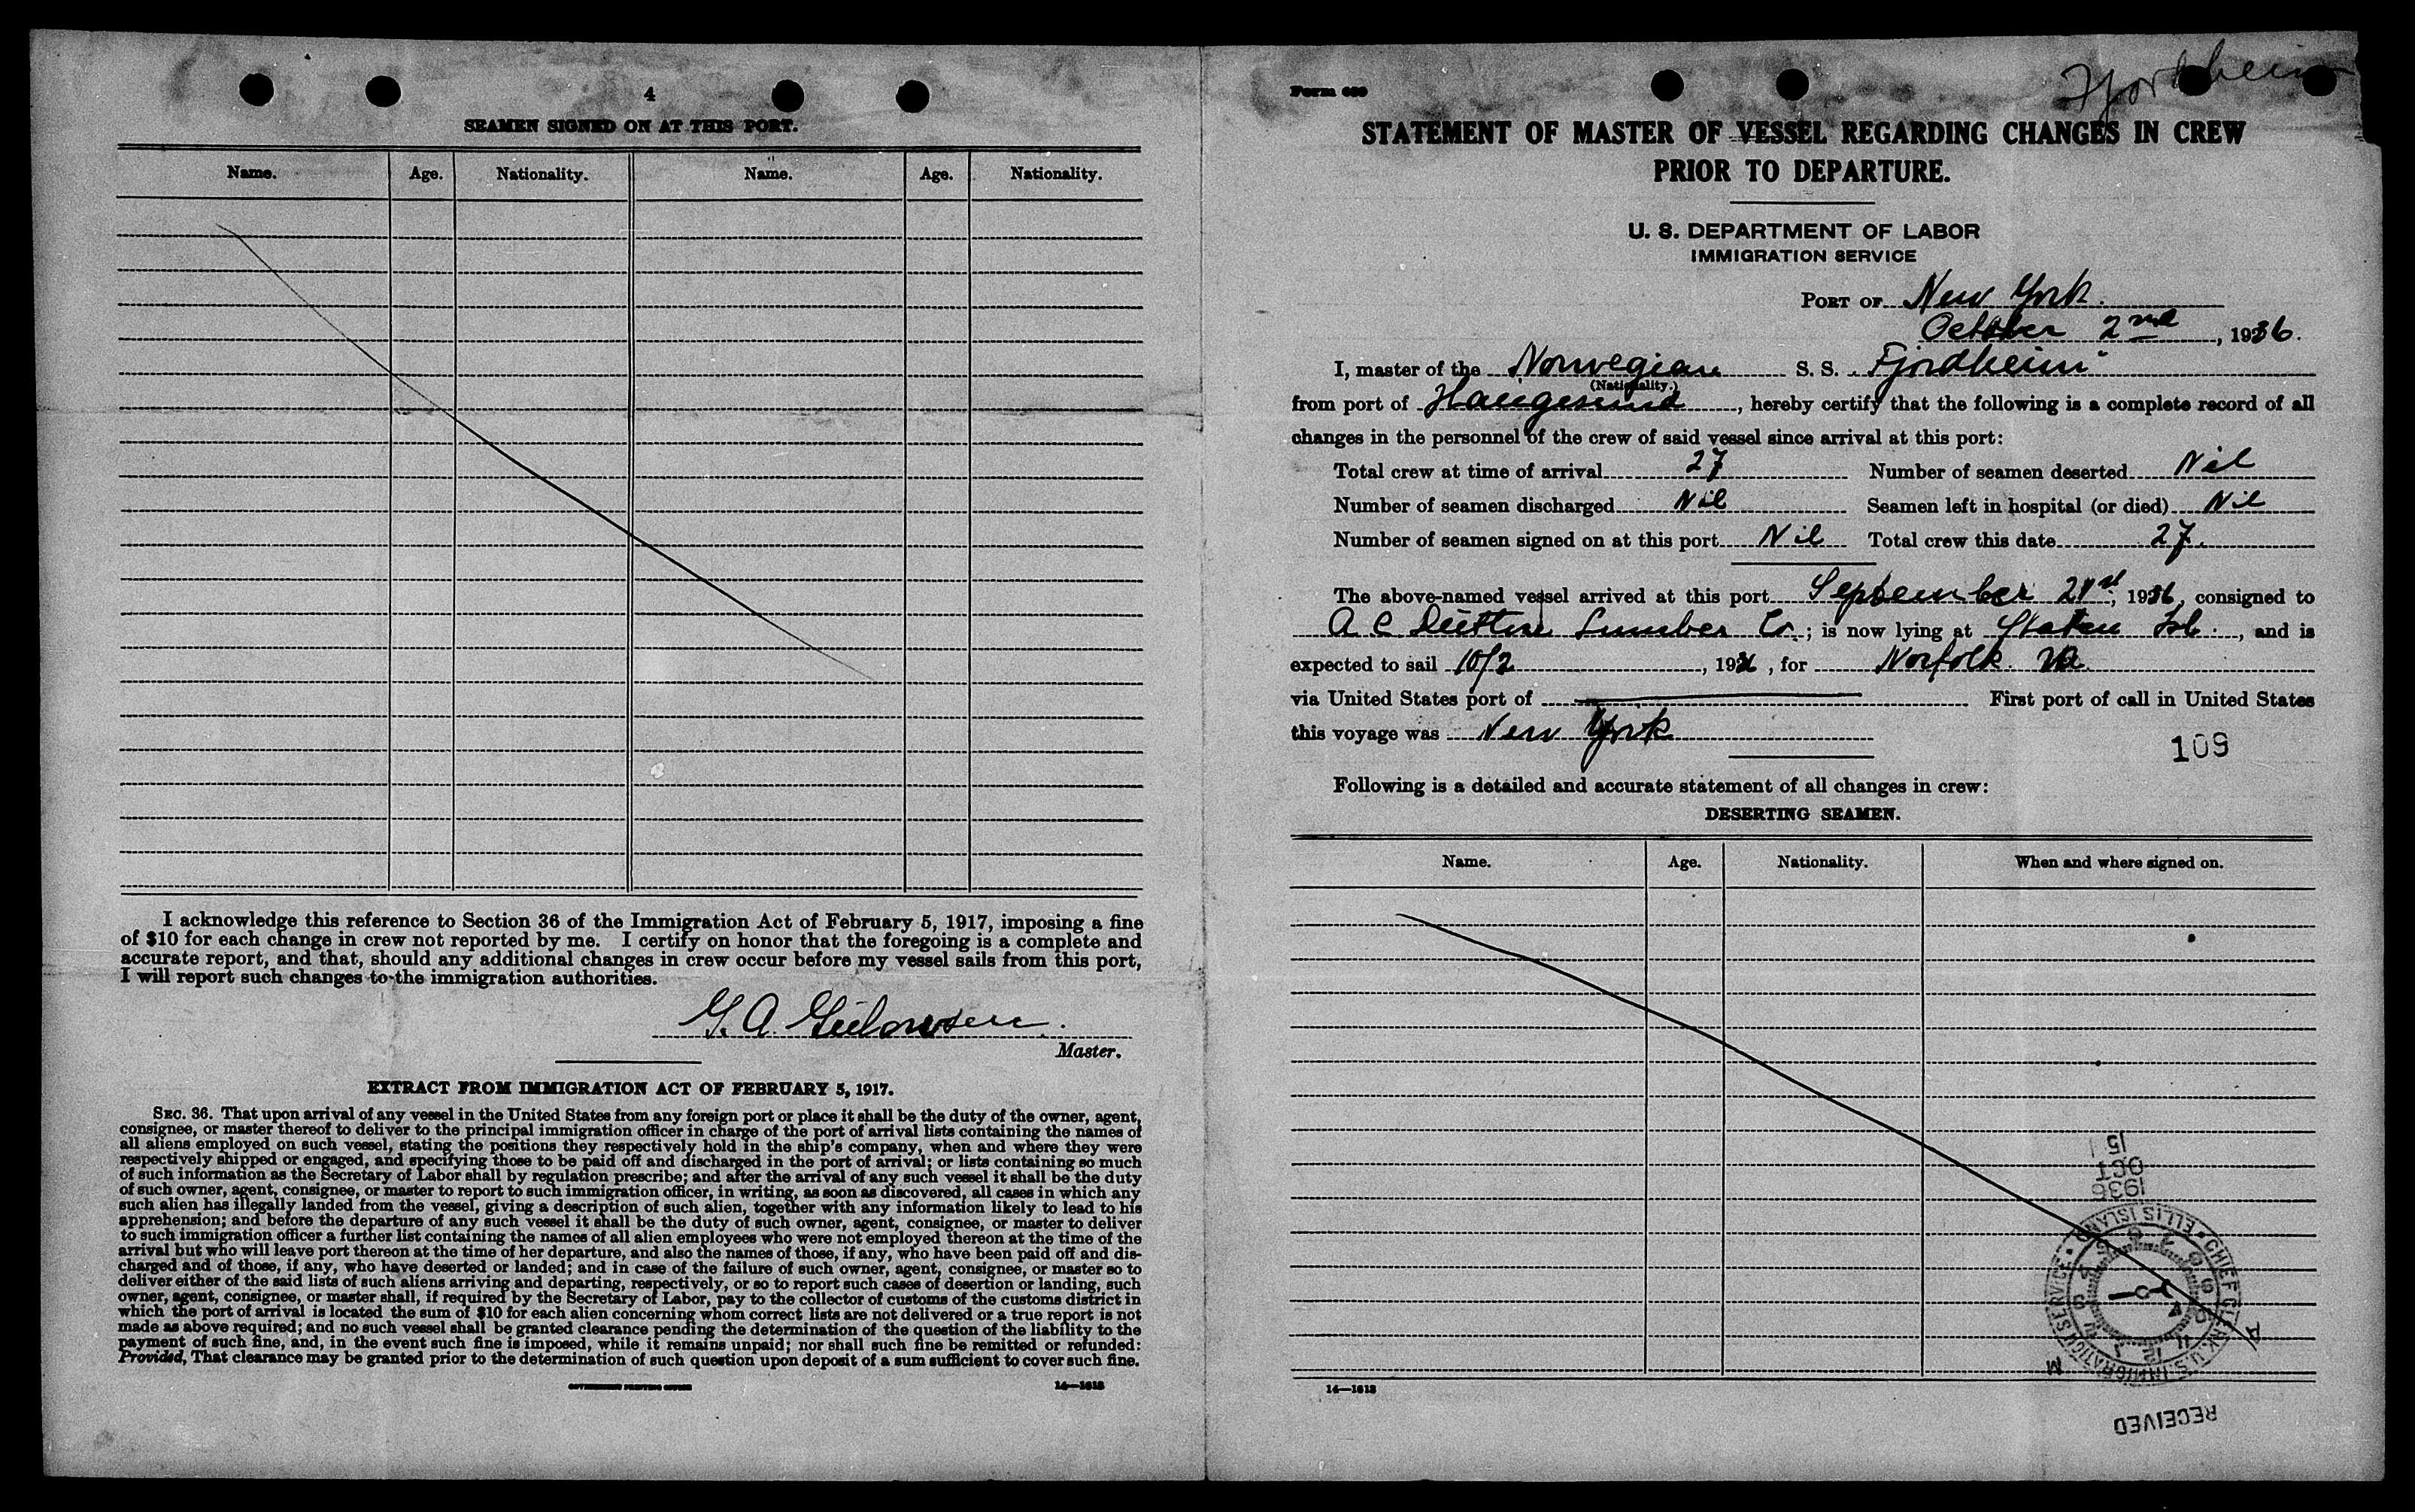 4
SEAMEN SIGNED ON AT THIS PORT.
Name. Age. Nationality. Name. Age. Nationality.
I acknowledge this reference to Section 36 of the Immigration Act of February 5, 1917, imposing a fine
of $10 for each change in crew not reported by me. I certify on honor that the foregoing is a complete and
accurate report, and that, should any additional changes in crew occur before my vessel sails from this port,
I will report such changes to the immigration authorities.
G. A.
Master.
EXTRACT FROM IMMIGRATION ACT OF FEBRUARY 5, 1917.
SEC. 36. That upon arrival of any vessel in the United States from any foreign port or place it shall be the duty of the owner, agent,
consignee, or master thereof to deliver to the principal immigration officer in charge of the port of arrival lists containing the names of
all aliens employed on such vessel, stating the positions they respectively hold in the ship's company, when and where they were
respectively shipped or engaged, and specifying those to be paid off and discharged in the port of arrival; or lists containing so much
of such information as the Secretary of Labor shall by regulation prescribe; and after the arrival of any such vessel it shall be the duty
of such owner, agent, consignee, or master to report to such immigration officer, in writing, as soon as discovered, all cases in which any
such alien has illegally landed from the vessel, giving a description of such alien, together with any information likely to lead to his
apprehension; and before the departure of any such vessel it shall be the duty of such owner, agent, consignee, or master to deliver
to such immigration officer a further list containing the names of all alien employees who were not employed thereon at the time of the
arrival but who will leave port thereon at the time of her departure, and also the names of those, if any, who have been paid off and dis-
charged and of those, if any, who have deserted or landed; and in case of the failure of such owner, agent, consignee, or master so to
deliver either of the said lists of such aliens arriving and departing, respectively, or so to report such cases of desertion or landing, such
owner, agent, consignee, or master shall, if required by the Secretary of Labor, pay to the collector of customs of the customs district in
which the port of arrival is located the sum of $10 for each alien concerning whom correct lists are not delivered or a true report is not
made as above required; and no such vessel shall be granted clearance pending the determination of the question of the liability to the
payment of such fine, and, in the event such fine is imposed, while it remains unpaid; nor shall such fine be remitted or refunded:
Provided, That clearance may be granted prior to the determination of such question upon deposit of a sum sufficient to cover such fine.
GOVERNMENT PRINTING OFFICE 14—1613
Fjordheim
Form 689
STATEMENT OF MASTER OF VESSEL REGARDING CHANGES IN CREW
PRIOR TO DEPARTURE.
U. S. DEPARTMENT OF LABOR
IMMIGRATION SERVICE
PORT OF New York.
October 2nd, 1936.
I, master of the Norwegian S. S. Fjordheim
(Nationality.)
from port of Haugesund, hereby certify that the following is a complete record of all
changes in the personnel of the crew of said vessel since arrival at this port:
Total crew at time of arrival 27 Number of seamen deserted Nil
Number of seamen discharged Nil Seamen left in hospital (or died) Nil
Number of seamen signed on at this port Nil Total crew this date 27.
The above-named vessel arrived at this port September 21st, 1936, consigned to
A C Dutton Lumber Co.; is now lying at Staten Isl., and is
expected to sail 10/2, 1936, for Norfolk Va.
via United States port of First port of call in United States
this voyage was New York
109
Following is a detailed and accurate statement of all changes in crew:
DESERTING SEAMEN.
Name. Age. Nationality. When and where signed on.
15
OCT
1936
CHIEF CLERK U.S. IMMIGRATION SERVICE • ELLIS ISLAND
A
M
14—1613
RECEIVED